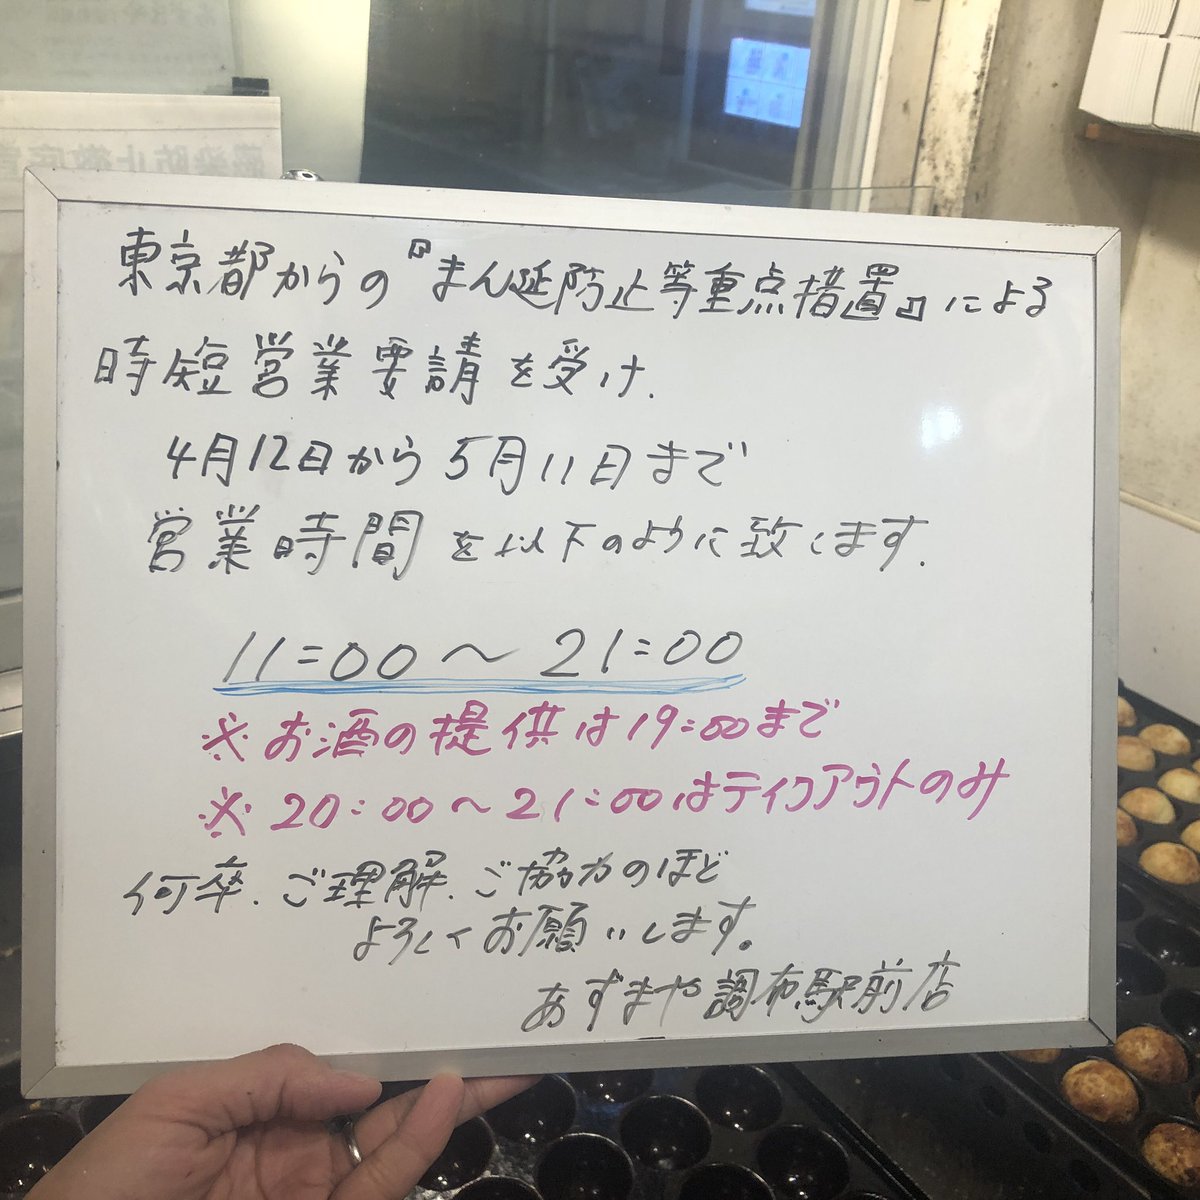 東京都からの『まん延防止等重点措置』による
時短営業要請を受け、
4月12日から5月11日まで
営業時間を以下のように致します。
11:00〜21:00
※お酒の提供は19:00まで
※20:00〜21:00はテイクアウトのみ
何卒、ご理解、ご協力のほど
よろしくお願いします。
あずまや調布駅前店